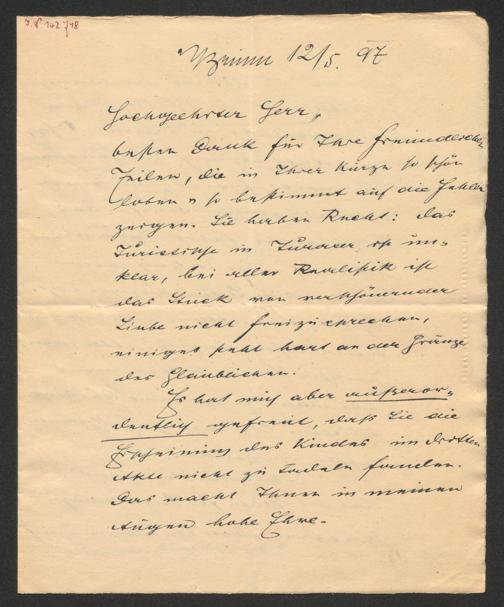 I. N 142.748
Brünn 12/5. 97
Hochgeehrter Herr,
besten Dank für Ihre freundlichen
Zeilen, die in Ihrer Kürze so schön
loben u so bestimmt auf die Fehler
zeigen. Sie haben Recht: das
Juristische in ist un-
klar, bei aller Realistik ist
das Stück von verschönernder
Liebe nicht freizusprechen,
einiges steht hart an der Gränze
des Glaublichen.
Es hat mich aber außeror-
dentlich gefreut, daß Sie die
Erscheinung des Kindes im dritten
Akte nicht zu tadeln fanden.
Das macht Ihnen in meinen
Augen hohe Ehre.